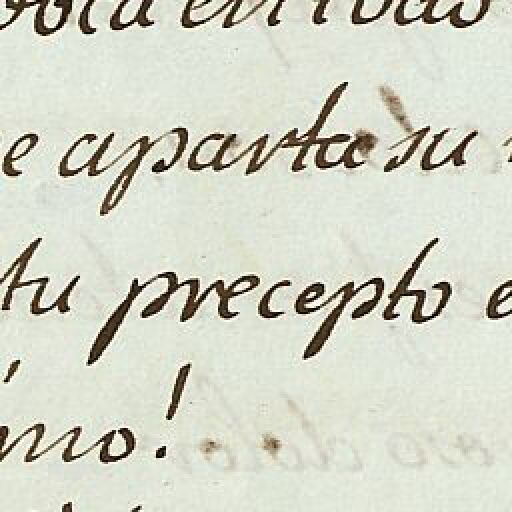 e aparta su
tu precepto e
imo!